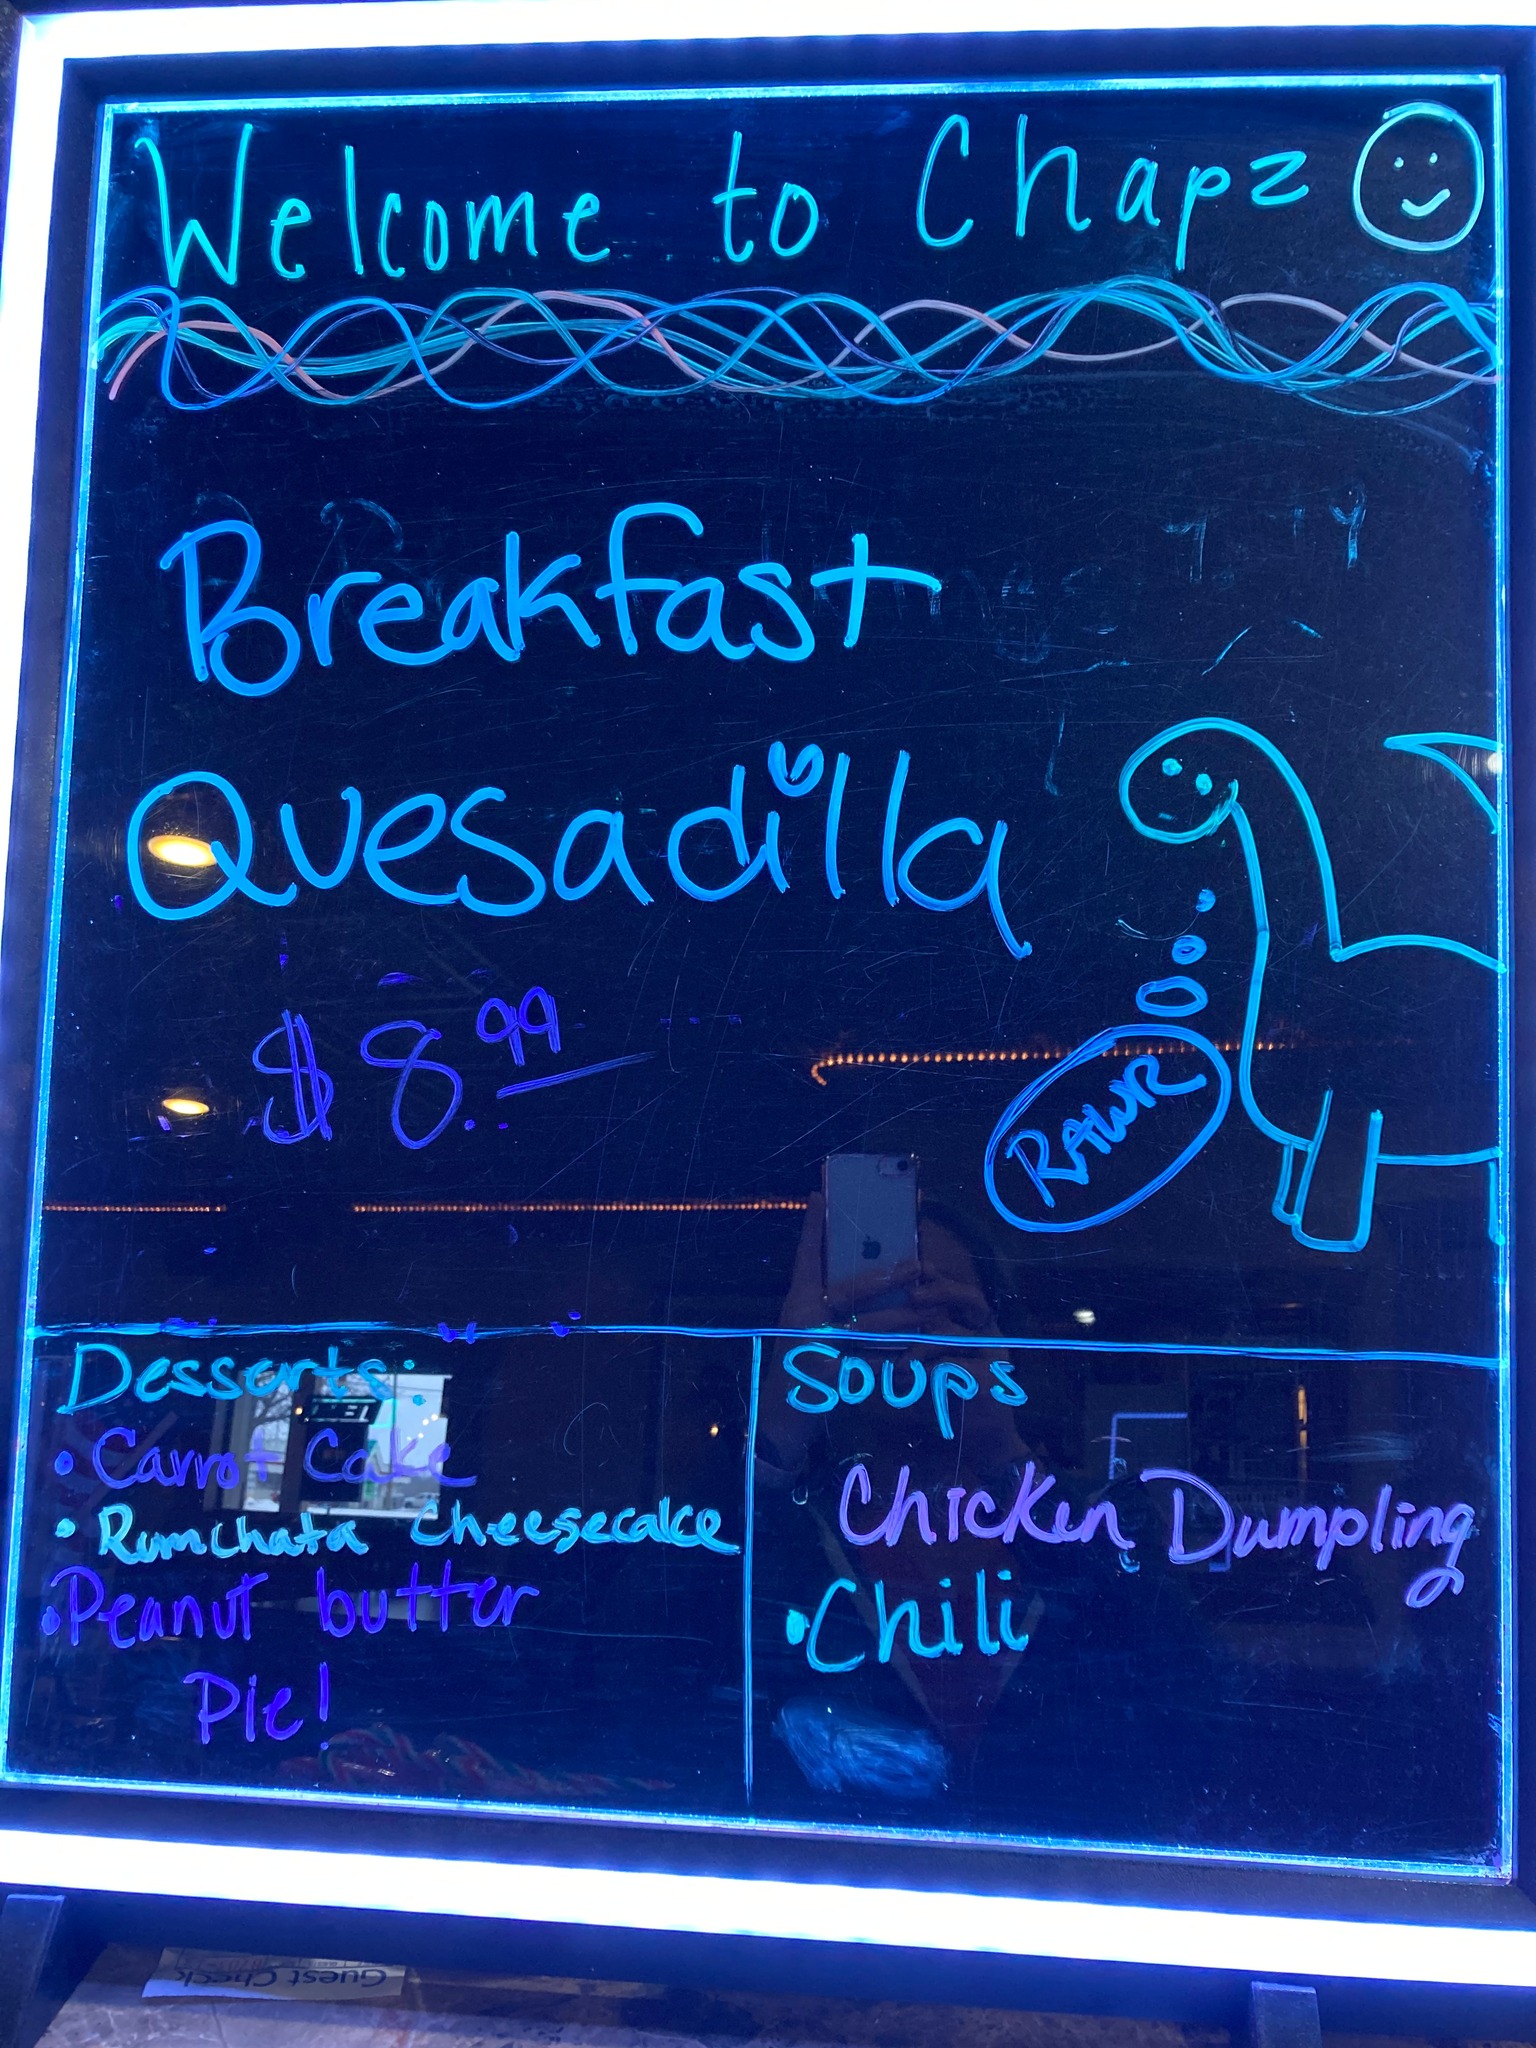 Welcome to Chapz
Breakfast
Quesadilla
$8.99
RAWR
Desserts:
• Carrot Cake
• Rumchata Cheesecake
• Peanut butter
Pie!
Soups
Chicken Dumpling
• Chili
Guest Check